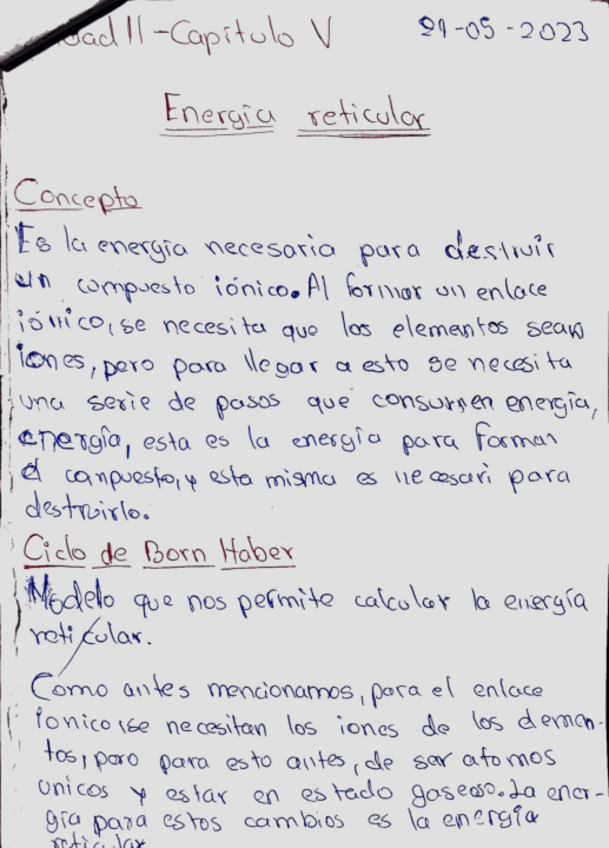 dad II - Capítulo V 21-05-2023
Energía reticular
Concepto
Es la energía necesaria para destruir
un compuesto iónico. Al formar un enlace
iónico, se necesita que los elementos sean
iones, pero para llegar a esto se necesita
una serie de pasos que consumen energía,
energía, esta es la energía para formar
el canpuesto, y esta misma es necesari para
destruirlo.
Ciclo de Born Haber
Modelo que nos permite calcular la energía
reticular.
Como antes mencionamos, para el enlace
ionico se necesitan los iones de los elemen-
tos, pero para esto antes, de ser atomos
unicos y estar en estado gaseoso. La ener-
gía para estos cambios es la energía
reticular